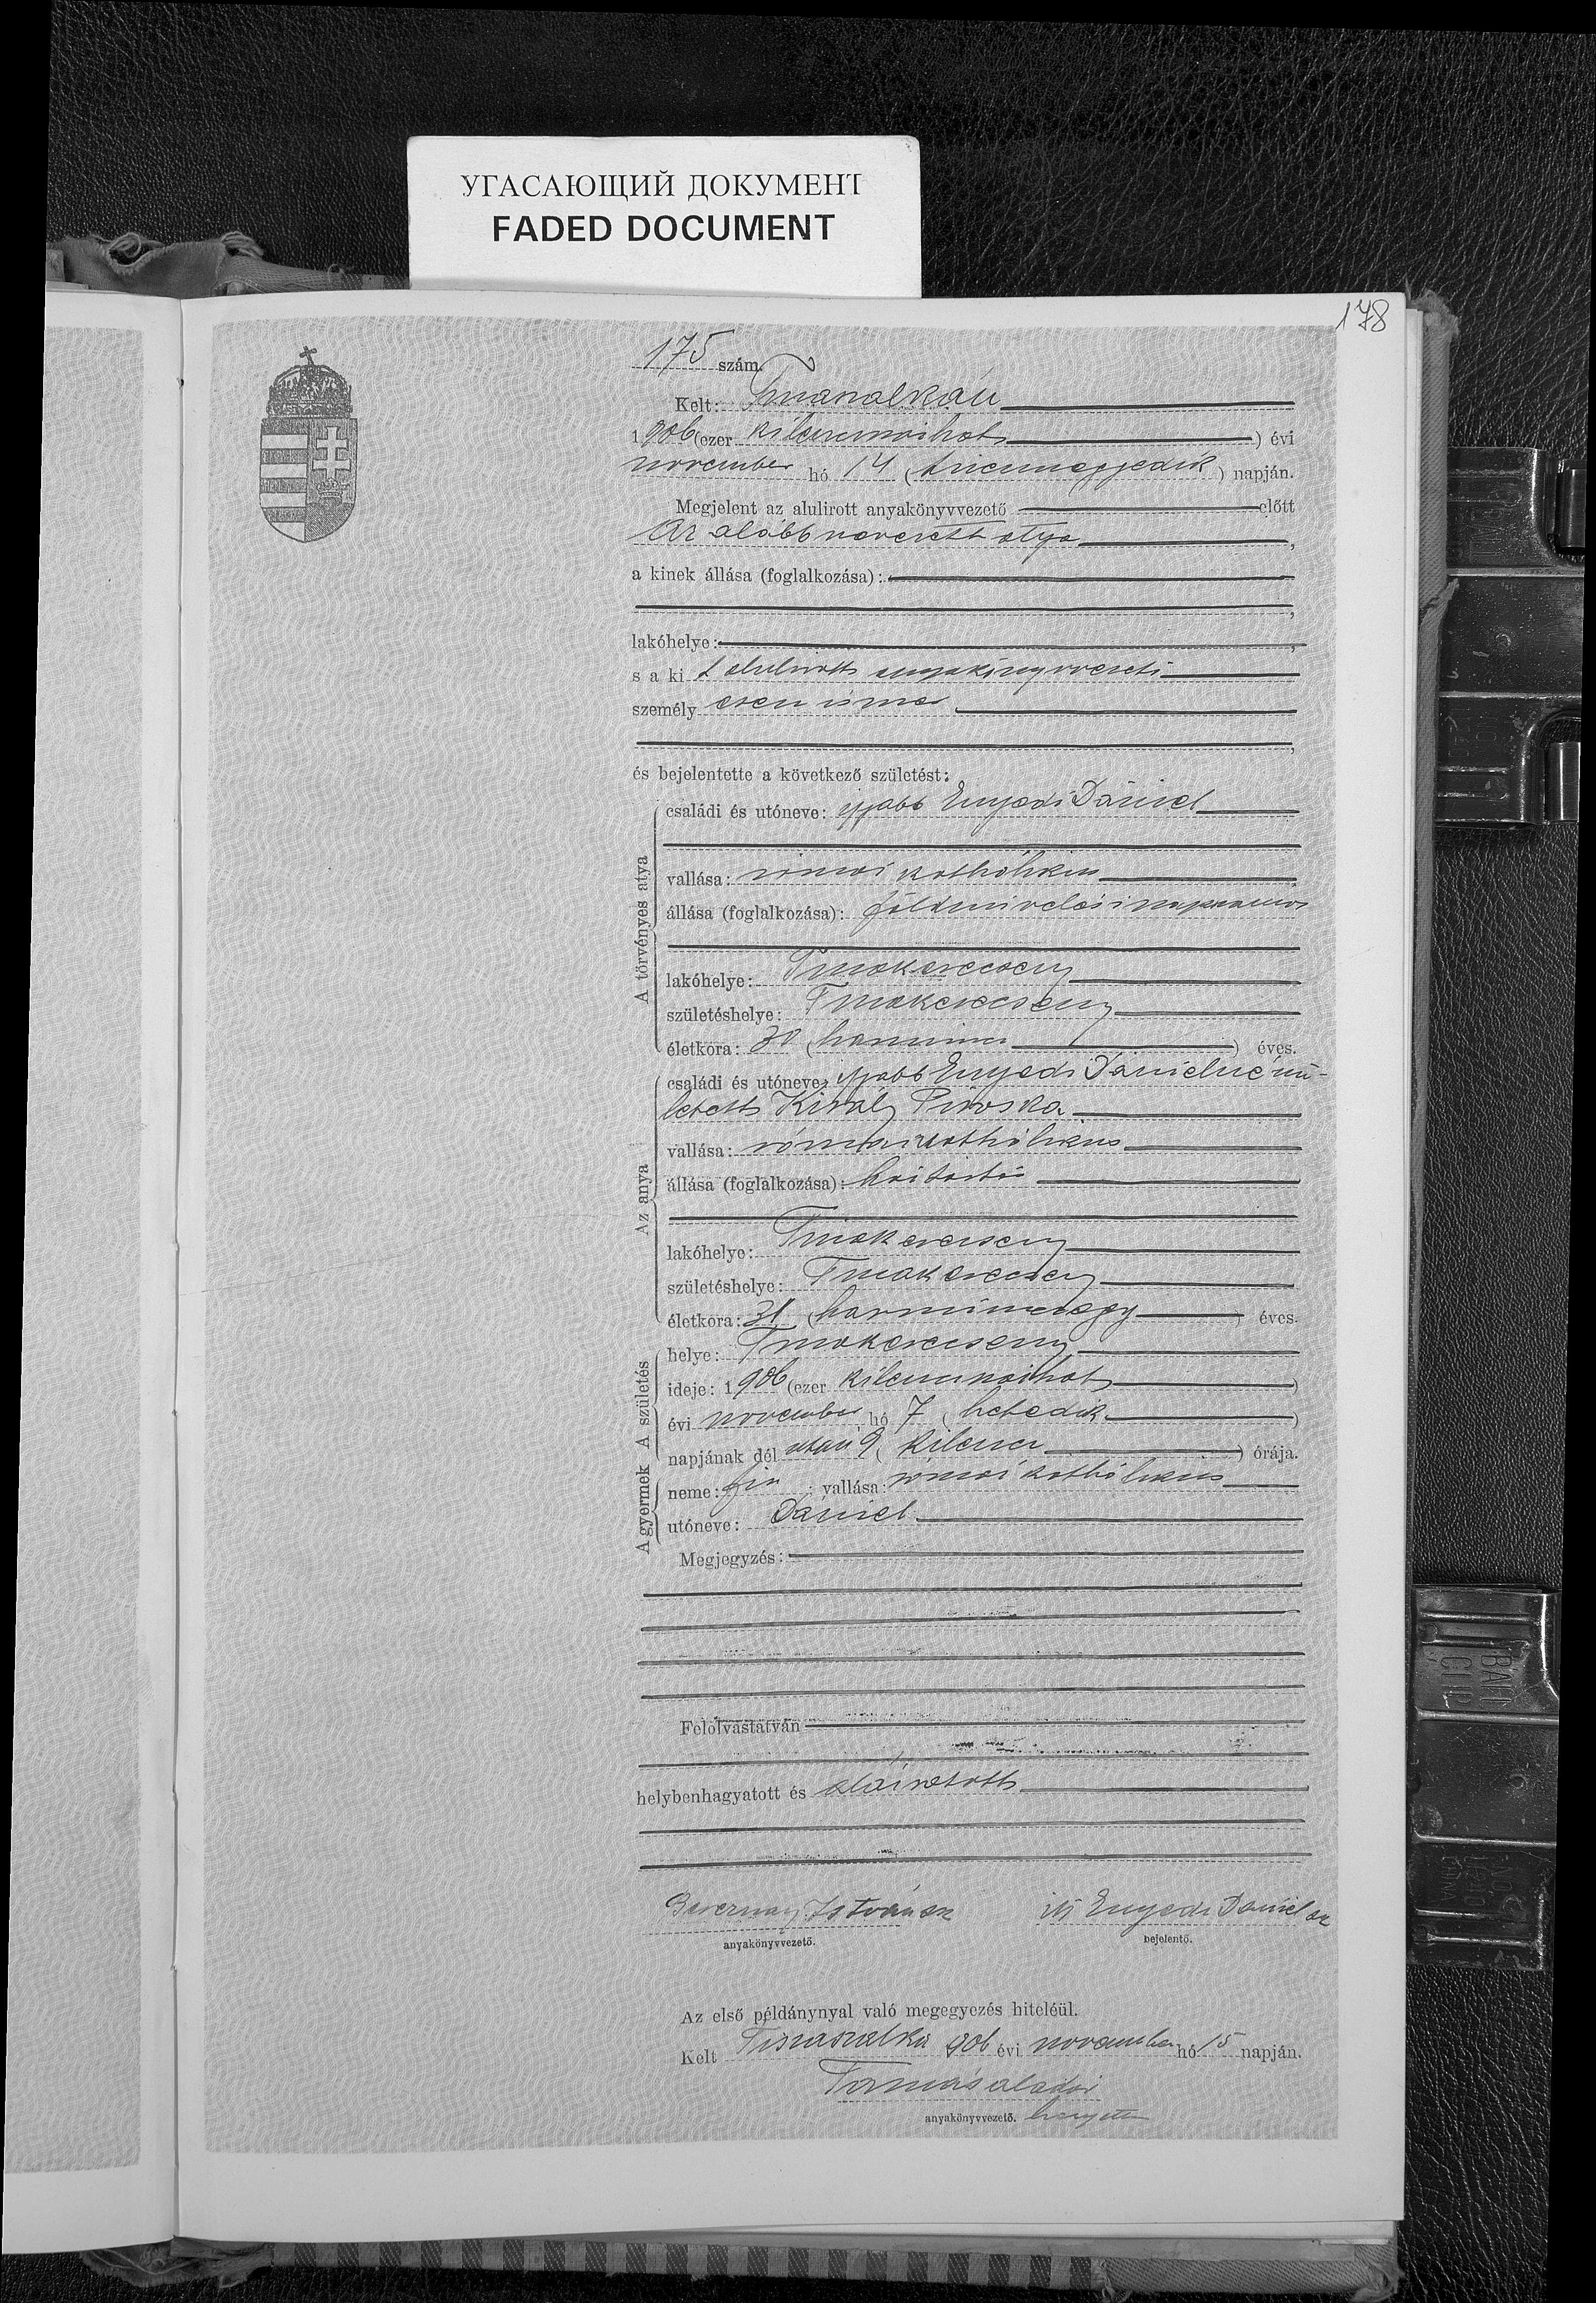 УГАСАЮЩИЙ ДОКУМЕНТ
FADED DOCUMENT
178
175 szám.
Kelt: Tiszaszalkán
1906 (ezer kilencszázhat) évi
november hó 14 (tizennegyedik) napján.
Megjelent az alulirott anyakönyvvezető előtt
Az alább nevezett atya,
a kinek állása (foglalkozása):
lakóhelye:
s a ki t alulirott anyakönyvvezető
személy esen ismer
és bejelentette a következő születést:
A törvényes atya
családi és utóneve: ifjabb Enyedi Dániel
vallása: római katholikus
állása (foglalkozása): földmivelési napszámos
lakóhelye: Tiszakerecseny
születéshelye: Tiszakerecseny
életkora: 30 (harmincz) éves.
Az anya
családi és utóneve: ifjabb Enyedi Dánielné szü-
letett Király Piroska
vallása: római katholikus
állása (foglalkozása): háztartás
lakóhelye: Tiszakerecseny
születéshelye: Tiszakerecseny
életkora: 31 (harminczegy) éves.
A születés
helye: Tiszakerecseny
ideje: 1906 (ezer kilencszázhat)
évi november hó 7 (hetedik)
napjának dél után 9 (kilencz) órája.
A gyermek
neme: fiu; vallása: római katholikus
utóneve: Dániel
Megjegyzés:
Felolvastatván
helybenhagyatott és aláiratott
István sk ifj Enyedi Dániel sk
anyakönyvvezető. bejelentő.
Az első példánynyal való megegyezés hiteléül.
Kelt Tiszaszalka 906 évi november hó 15 napján.
Tamás Aladár
anyakönyvvezető. helyettes